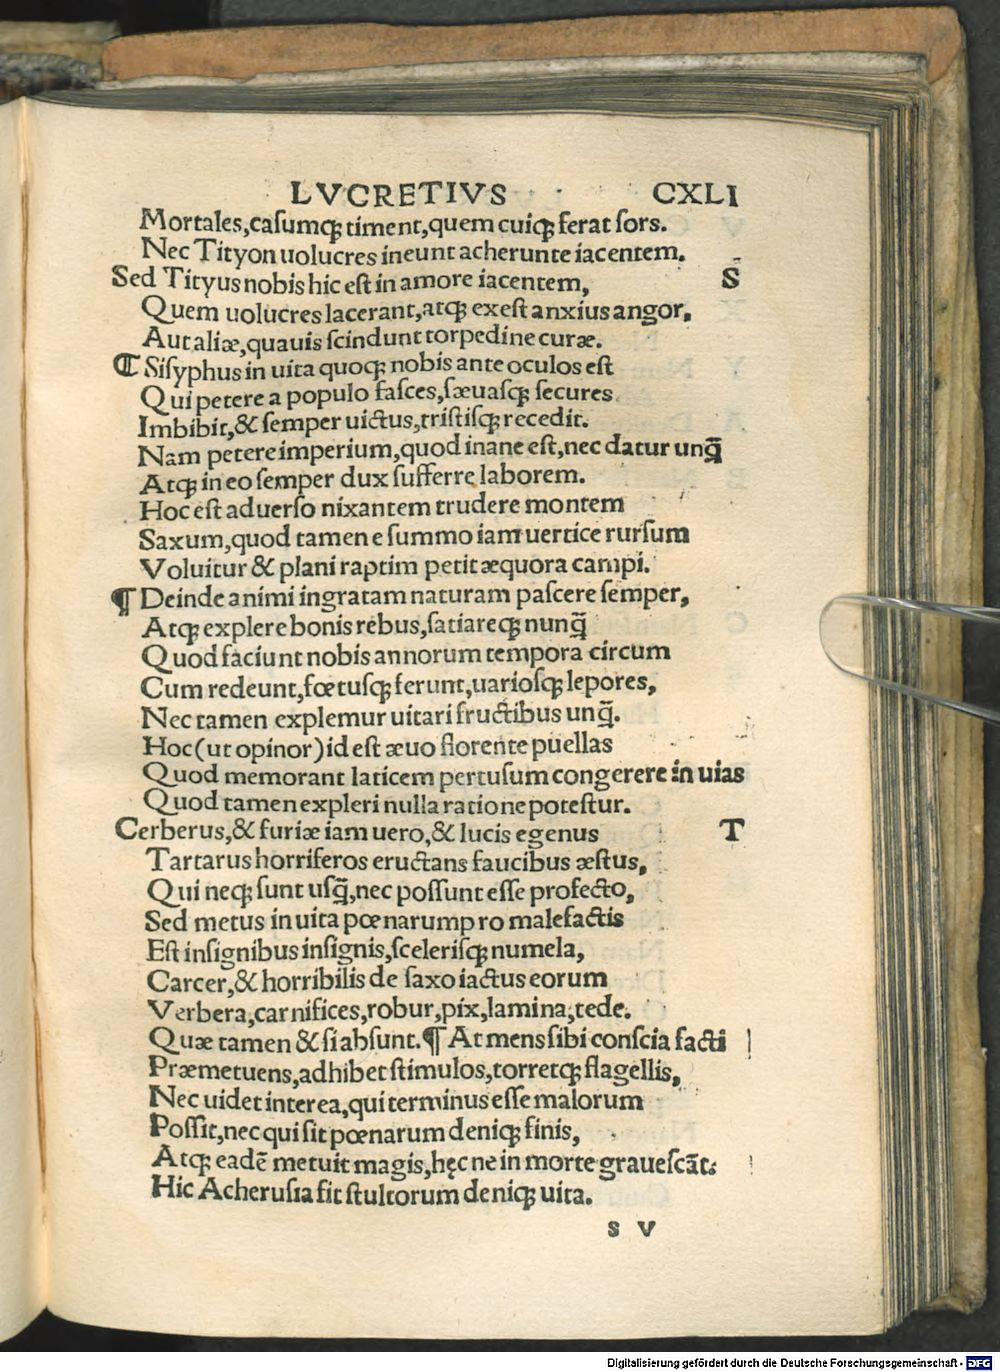 LVCRETIVS CXLI
Mortales,casumqꝫ timent,quem cuiqꝫ ferat sors.
Nec Tityon uolucres ineunt acherunte iacentem.
Sed Tityus nobis hic est in amore iacentem, S
Quem uolucres lacerant,atqꝫ exest anxius angor,
Aut aliæ,quauis scindunt torpedine curæ.
¶ Sisyphus in uita quoqꝫ nobis ante oculos est
Qui petere a populo fasces,sæuasqꝫ secures
Imbibit,& semper uictus,tristisqꝫ recedit.
Nam petere imperium,quod inane est,nec datur unq̃
Atqꝫ in eo semper dux sufferre laborem.
Hoc est aduerso nixantem trudere montem
Saxum,quod tamen e summo iam uertice rursum
Voluitur & plani raptim petit æquora campi.
¶ Deinde animi ingratam naturam pascere semper,
Atqꝫ explere bonis rebus,satiareqꝫ nunq̃
Quod faciunt nobis annorum tempora circum
Cum redeunt,fœtusqꝫ ferunt,uariosqꝫ lepores,
Nec tamen explemur uitari fructibus unq̃.
Hoc(ut opinor)id est æuo florente puellas
Quod memorant laticem pertusum congerere in uias
Quod tamen expleri nulla ratione potestur.
Cerberus,& furiæ iam uero,& lucis egenus T
Tartarus horriferos eructans faucibus æstus,
Qui neqꝫ sunt usq̃,nec possunt esse profecto,
Sed metus in uita pœnarum pro malefactis
Est insignibus insignis,scelerisqꝫ numela,
Carcer,& horribilis de saxo iactus eorum
Verbera,carnifices,robur,pix,lamina,tede.
Quæ tamen & si absunt.¶ At mens sibi conscia facti
Præmetuens,adhibet stimulos,torretqꝫ flagellis,
Nec uidet interea,qui terminus esse malorum
Possit,nec qui sit pœnarum deniqꝫ finis,
Atqꝫ eadē metuit magis,hęc ne in morte grauescāt.
Hic Acherusia fit stultorum deniqꝫ uita.
S V
Digitalisierung gefördert durch die Deutsche Forschungsgemeinschaft - DFG